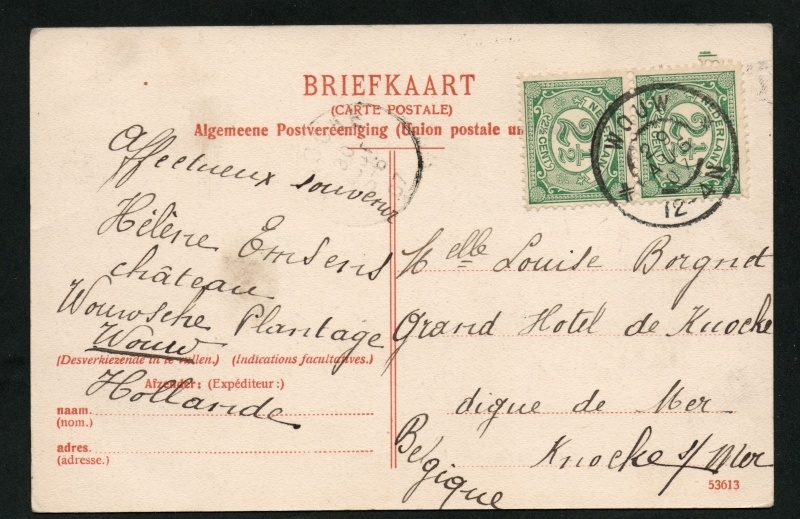 BRIEFKAART
(CARTE POSTALE)
Algemeene Postvereeniging (Union postale un
NEDERLAND
2½
2½ CENT
NEDERLAND
2½
WOUW
12-
Affectueux souvenir
Hélène Emsens
château
Wouwsche Plantage
Wouw
Hollande
(Desverkiezende in te vullen.) (Indications facultatives.)
Afzender: (Expéditeur:)
naam.
(nom.)
adres.
(adresse.)
Melle Louise Borgnet
Grand Hotel de Knocke
digue de Mer
Knocke s/Mer
Belgique
53613